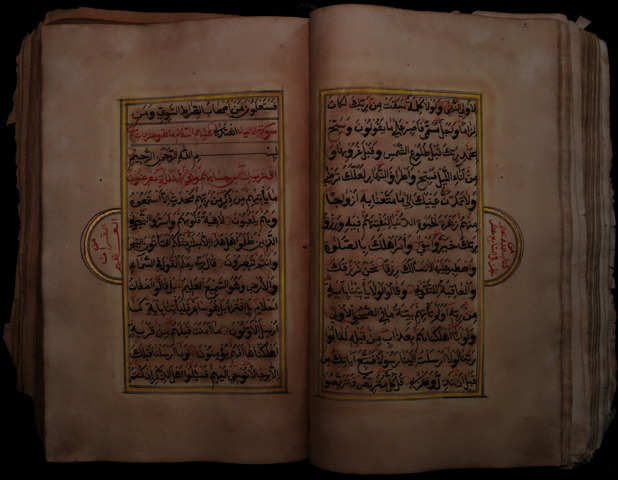 لأولي النهى ولولا كلمة سبقت من ربك لكان
لزاما وأجل مسمى فاصبر على ما يقولون وسبح
بحمد ربك قبل طلوع الشمس وقبل غروبها و
من آناء الليل فسبح وأطراف النهار لعلك ترضى
ولا تمدن عينيك إلى ما متعنا به أزواجا
منهم زهرة الحيوة الدنيا لنفتنهم فيه ورزق
ربك خير وأبقى وأمر أهلك بالصلوة
واصطبر عليها لا نسألك رزقا نحن نرزقك
والعاقبة للتقوى وقالوا لولا يأتينا بآية
من ربه أولم تأتهم بينة ما في الصحف الأولى
ولو أنا أهلكناهم بعذاب من قبله لقالوا
ربنا لولا أرسلت إلينا رسولا فنتبع آياتك من
قبل أن نذل ونخزى قل كل متربص فتربصوا
فستعلمون من أصحاب الصراط السوي ومن
سورة الأنبياء اهتدى عليهم السلام مائة
بسم الله الرحمن الرحيم
اقترب للناس حسابهم وهم في غفلة معرضون
ما يأتيهم من ذكر من ربهم محدث إلا استمعوه
وهم يلعبون لاهية قلوبهم وأسروا النجوى
الذين ظلموا هل هذا إلا بشر مثلكم أفتأتون السحر
وأنتم تبصرون قال ربي يعلم القول في السماء
والأرض وهو السميع العليم بل قالوا أضغاث
أحلام بل افتراه بل هو شاعر فليأتنا بآية كما
أرسل الأولون ما آمنت قبلهم من قرية
أهلكناها أفهم يؤمنون وما أرسلنا قبلك
إلا رجالا نوحي إليهم فسئلوا أهل الذكر إن كنتم